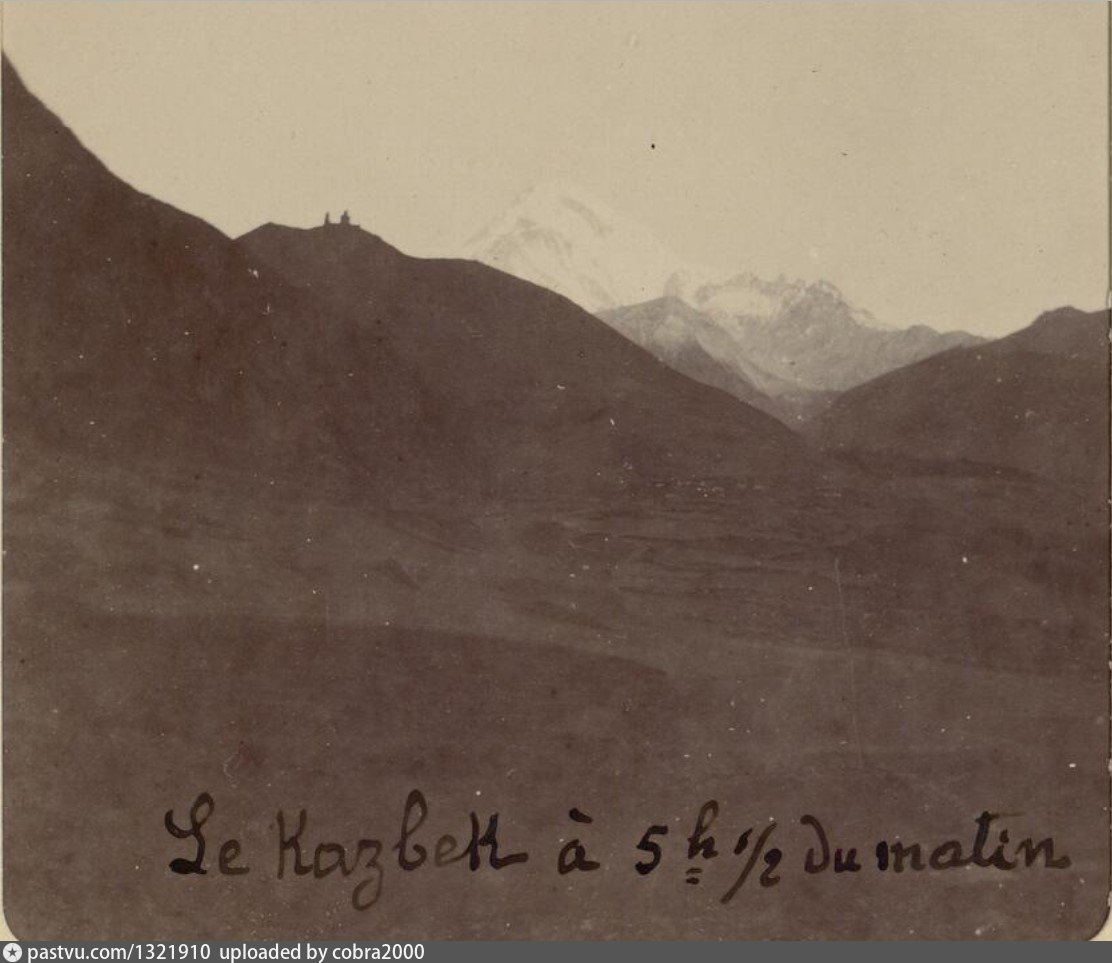 Le Kazbek à 5 h 1/2 du matin
pastvu.com/1321910 uploaded by cobra2000